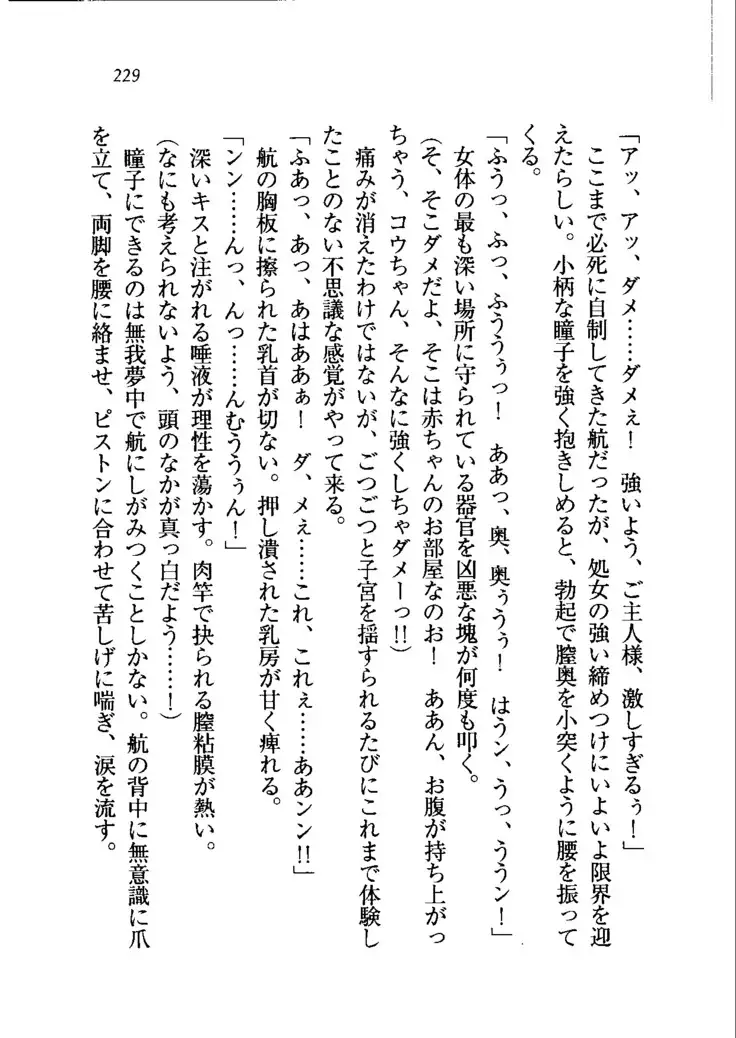 229
「アッ、アッ、ダメ……ダメぇ！　強いよう、ご主人様、激しすぎるぅ！」
　ここまで必死に自制してきた航だったが、処女の強い締めつけにいよいよ限界を迎
えたらしい。小柄な瞳子を強く抱きしめると、勃起で膣奥を小突くように腰を振って
くる。
「ふうっ、ふっ、ふううぅっ！　ああっ、奥、奥ぅうぅ！　はうン、うっ、ううン！」
　女体の最も深い場所に守られている器官を凶悪な塊が何度も叩く。
（そ、そこダメだよ、そこは赤ちゃんのお部屋なのお！　ああん、お腹が持ち上がっ
ちゃう、コウちゃん、そんなに強くしちゃダメーっ!!）
　痛みが消えたわけではないが、ごつごつと子宮を揺すられるたびにこれまで体験し
たことのない不思議な感覚がやって来る。
「ふあっ、あっ、あはああぁ！　ダ、メぇ……これ、これぇ……ああンン!!」
　航の胸板に擦られた乳首が切ない。押し潰された乳房が甘く痺れる。
「ンン……んっ、んっ……んむううぅん！」
　深いキスと注がれる唾液が理性を蕩かす。肉竿で抉られる膣粘膜が熱い。
（なにも考えられないよう、頭のなかが真っ白だよう……！）
　瞳子にできるのは無我夢中で航にしがみつくことしかない。航の背中に無意識に爪
を立て、両脚を腰に絡ませ、ピストンに合わせて苦しげに喘ぎ、涙を流す。